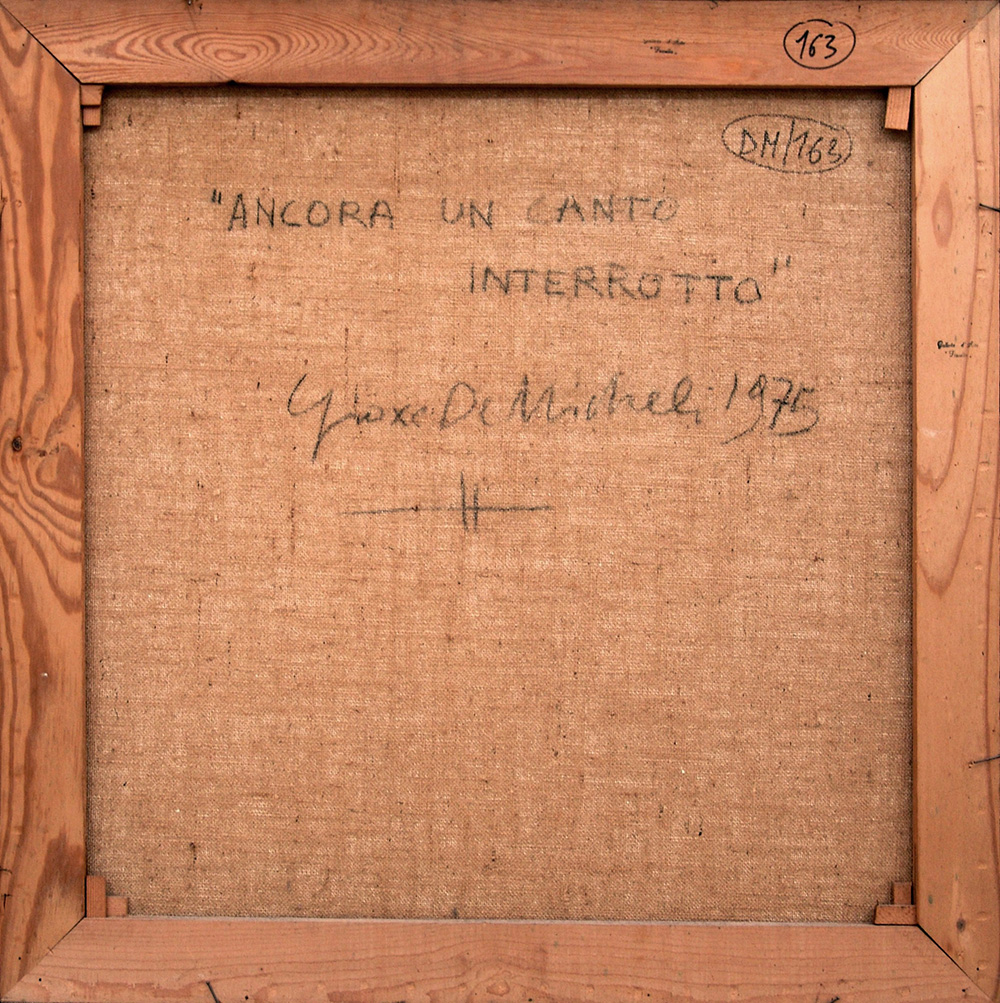 163
DM/163
"ANCORA UN CANTO
INTERROTTO"
Gioxe De Micheli 1975